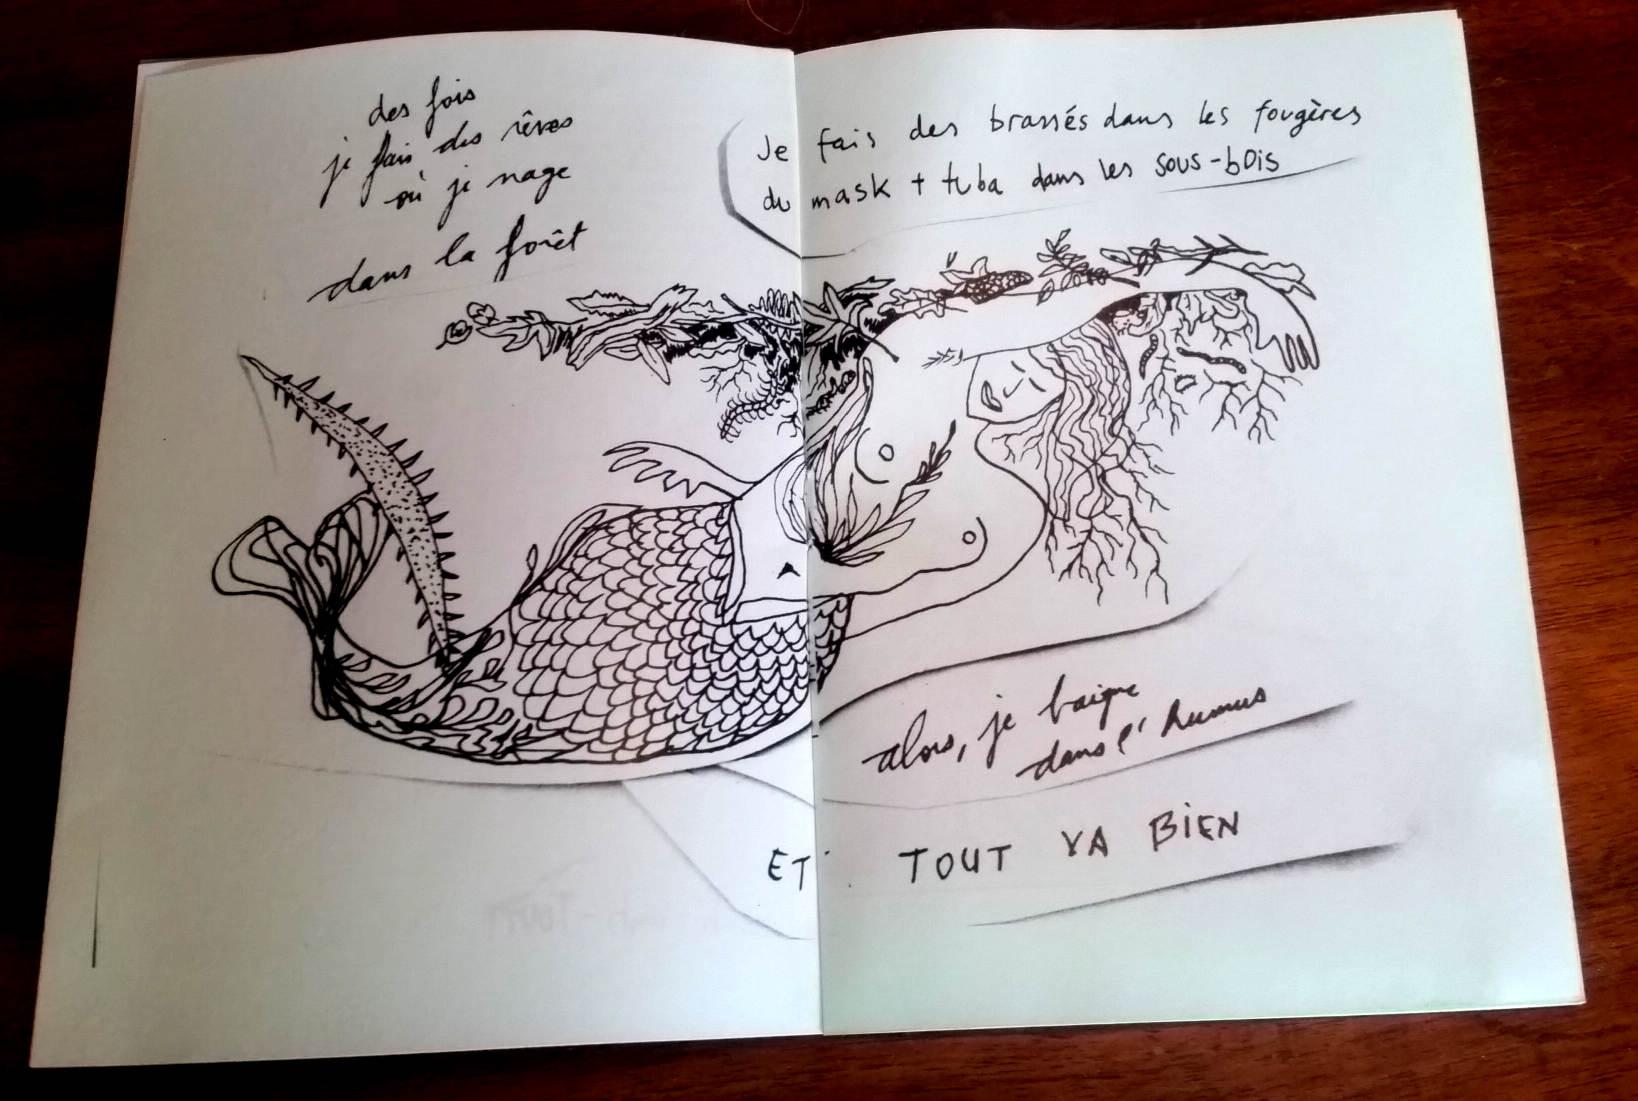 des fois
je fais des rêves
où je nage
dans la forêt
Je fais des brassés dans les fougères
du mask + tuba dans les sous-bois
alors, je baigne
dans l'humus
ET TOUT VA BIEN